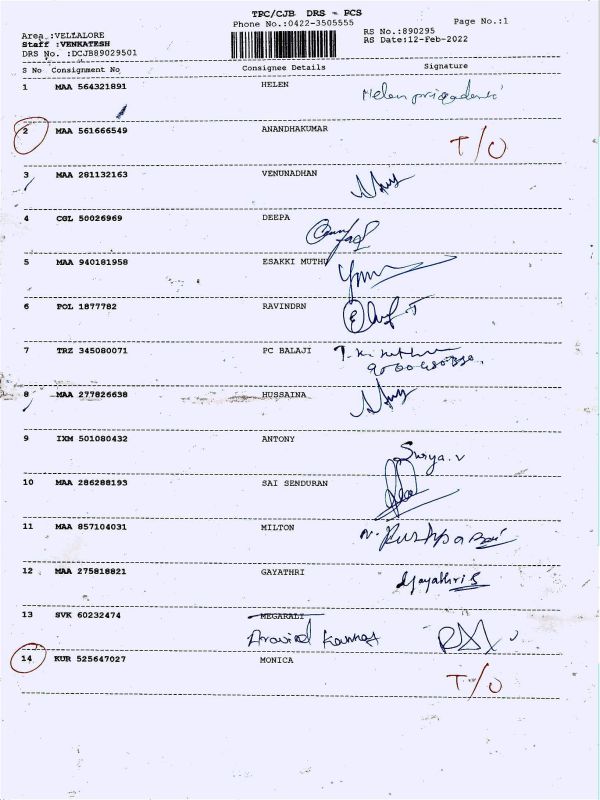 TPC/CJB DRS - PCS
Phone No.:0422-3505555
Page No.:1
Area :VELLALORE
Staff :VENKATESH
DRS No. :DCJB89029501
RS No.:890295
RS Date:12-Feb-2022
S No Consignment No Consignee Details Signature
1 MAA 564321891 HELEN
2 MAA 561666549 ANANDHAKUMAR T/O
3 MAA 281132163 VENUNADHAN
4 CGL 50026969 DEEPA
5 MAA 940181958 ESAKKI MUTHU
6 POL 1877782 RAVINDRN
7 TRZ 345080071 PC BALAJI
8 MAA 277826638 HUSSAINA
9 IXM 501080432 ANTONY Surya.v
10 MAA 286288193 SAI SENDURAN
11 MAA 857104031 MILTON
12 MAA 275818821 GAYATHRI Gayathri S
13 SVK 60232474 MEGARALI
Aravind
14 KUR 525647027 MONICA T/O